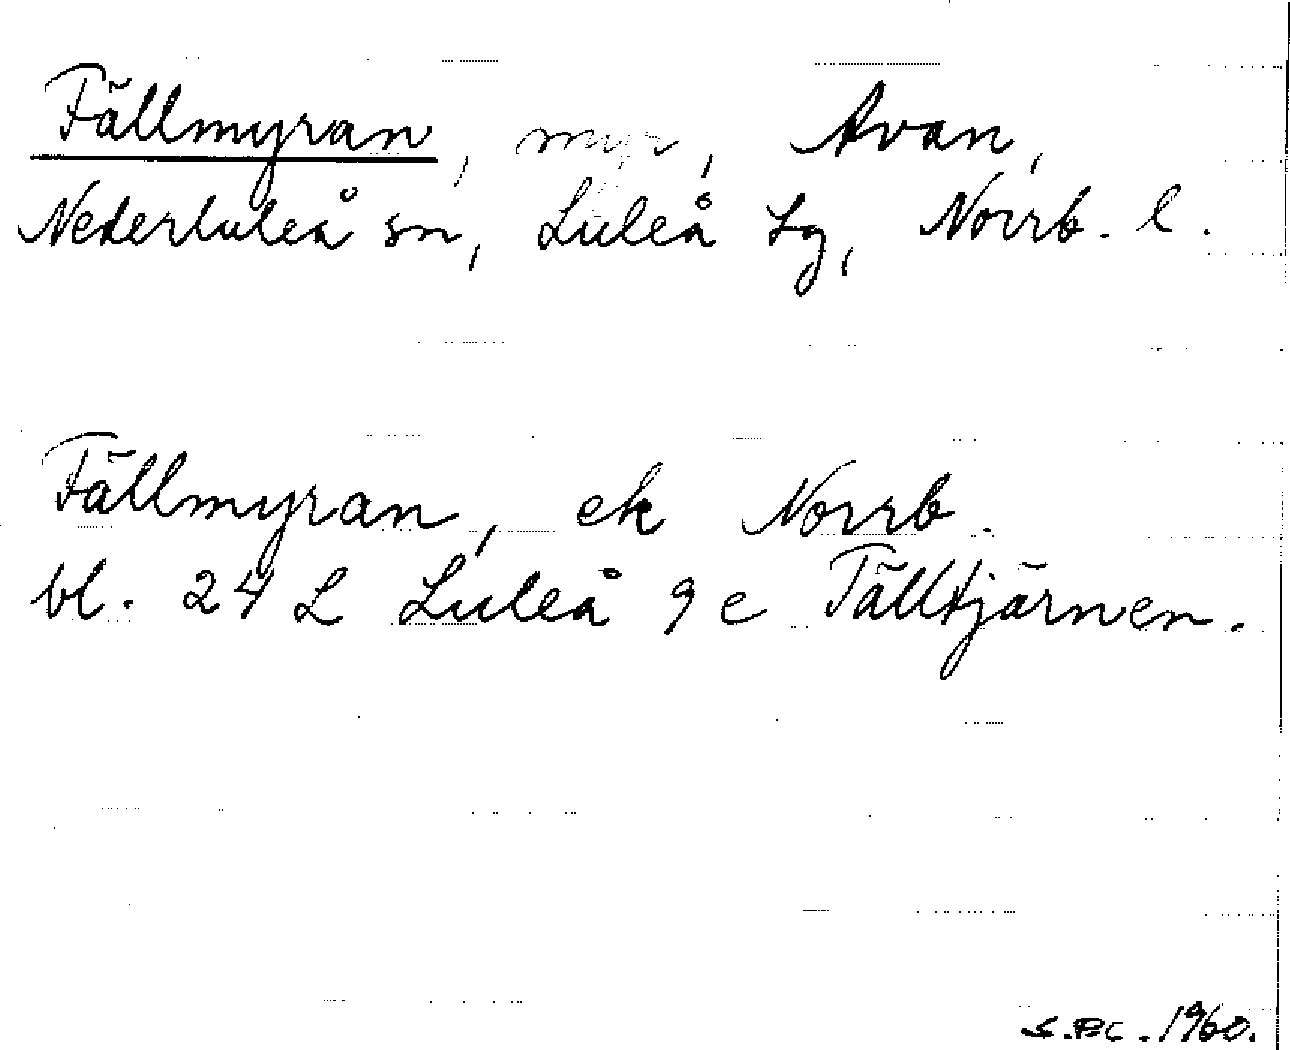 Fällmyran, myr, Avan,
Nederluleå sn, Luleå tg, Norrb. l.
Fällmyran, ek Norrb.
bl. 24 L Luleå 9 e Fälltjärnen.
S.BC. 1960.